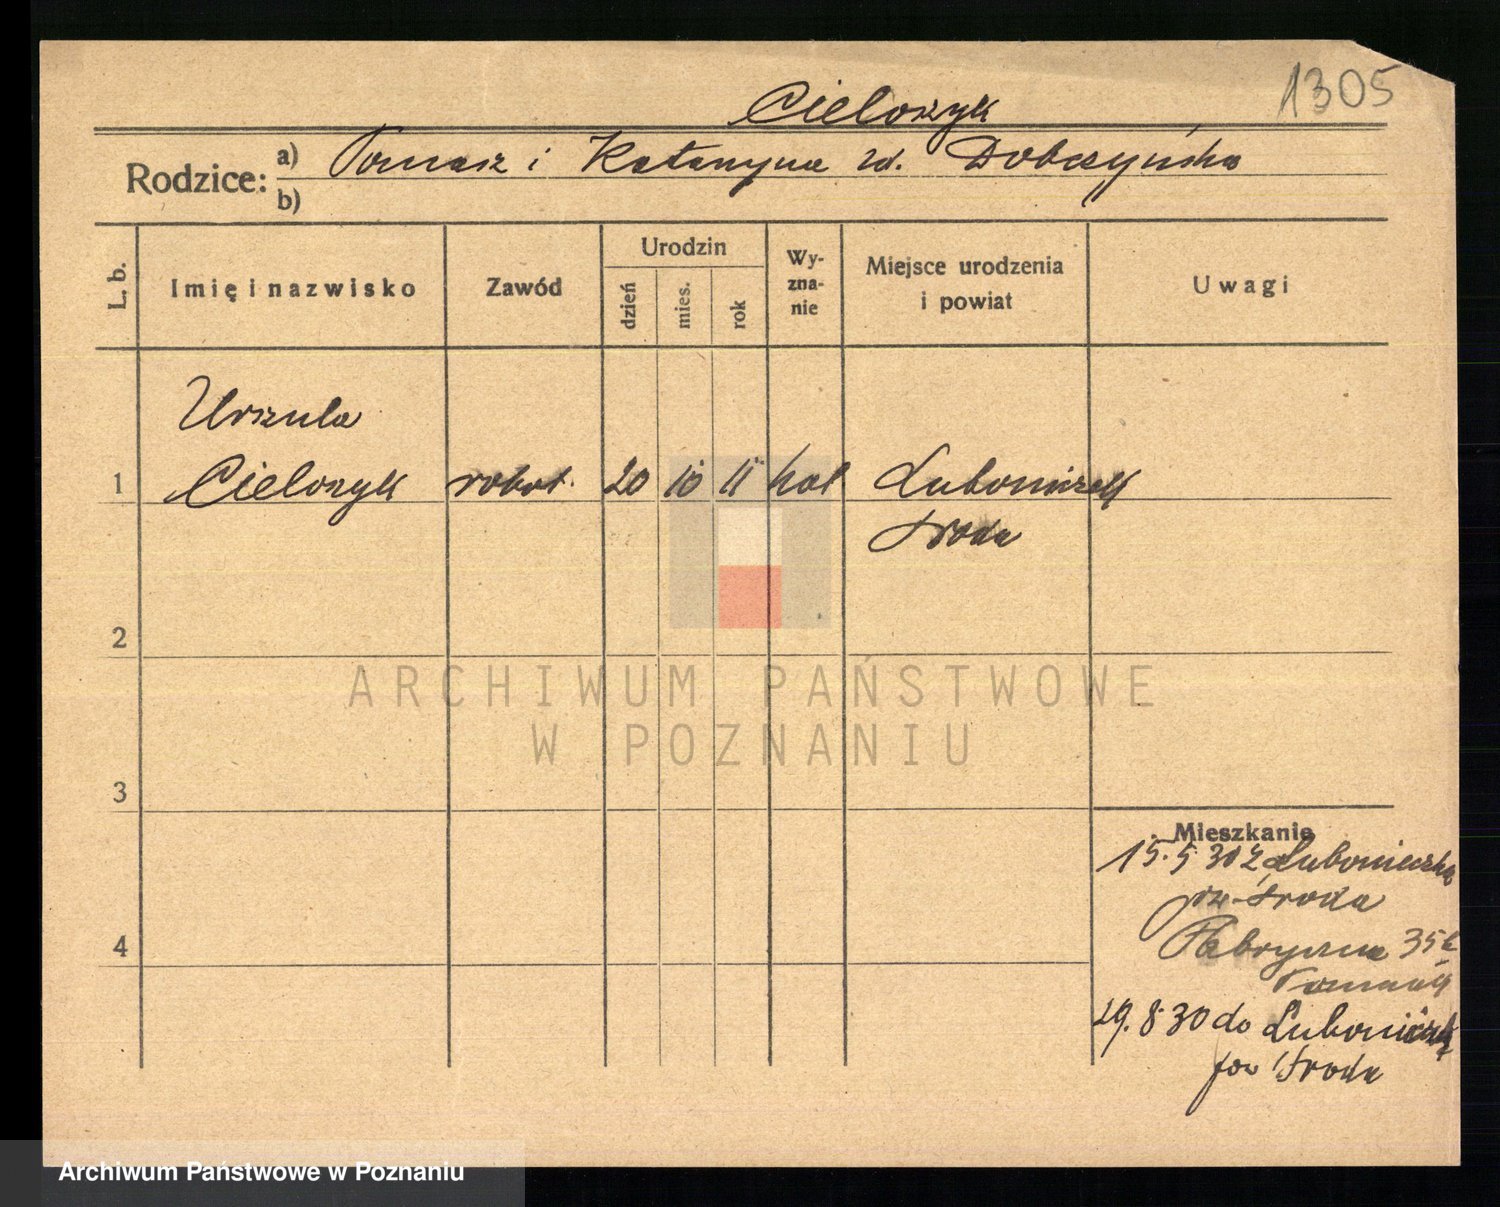 1305
Cielozyk
Rodzice: a) Tomasz i Katarzyna zd. Dobczyńska
b)
L. b. Imię i nazwisko Zawód Urodzin dzień mies. rok Wyznanie Miejsce urodzenia i powiat Uwagi
Urszula
1 Cielozyk robot. 20 10 11 kat Luboniczek
Środa
2
ARCHIWUM PAŃSTWOWE
W POZNANIU
3
Mieszkanie
15.5 30 z Lubonieczka
pow. Środa
4 Fabryczna 35
29.8 30 do
pow Środa
Archiwum Państwowe w Poznaniu